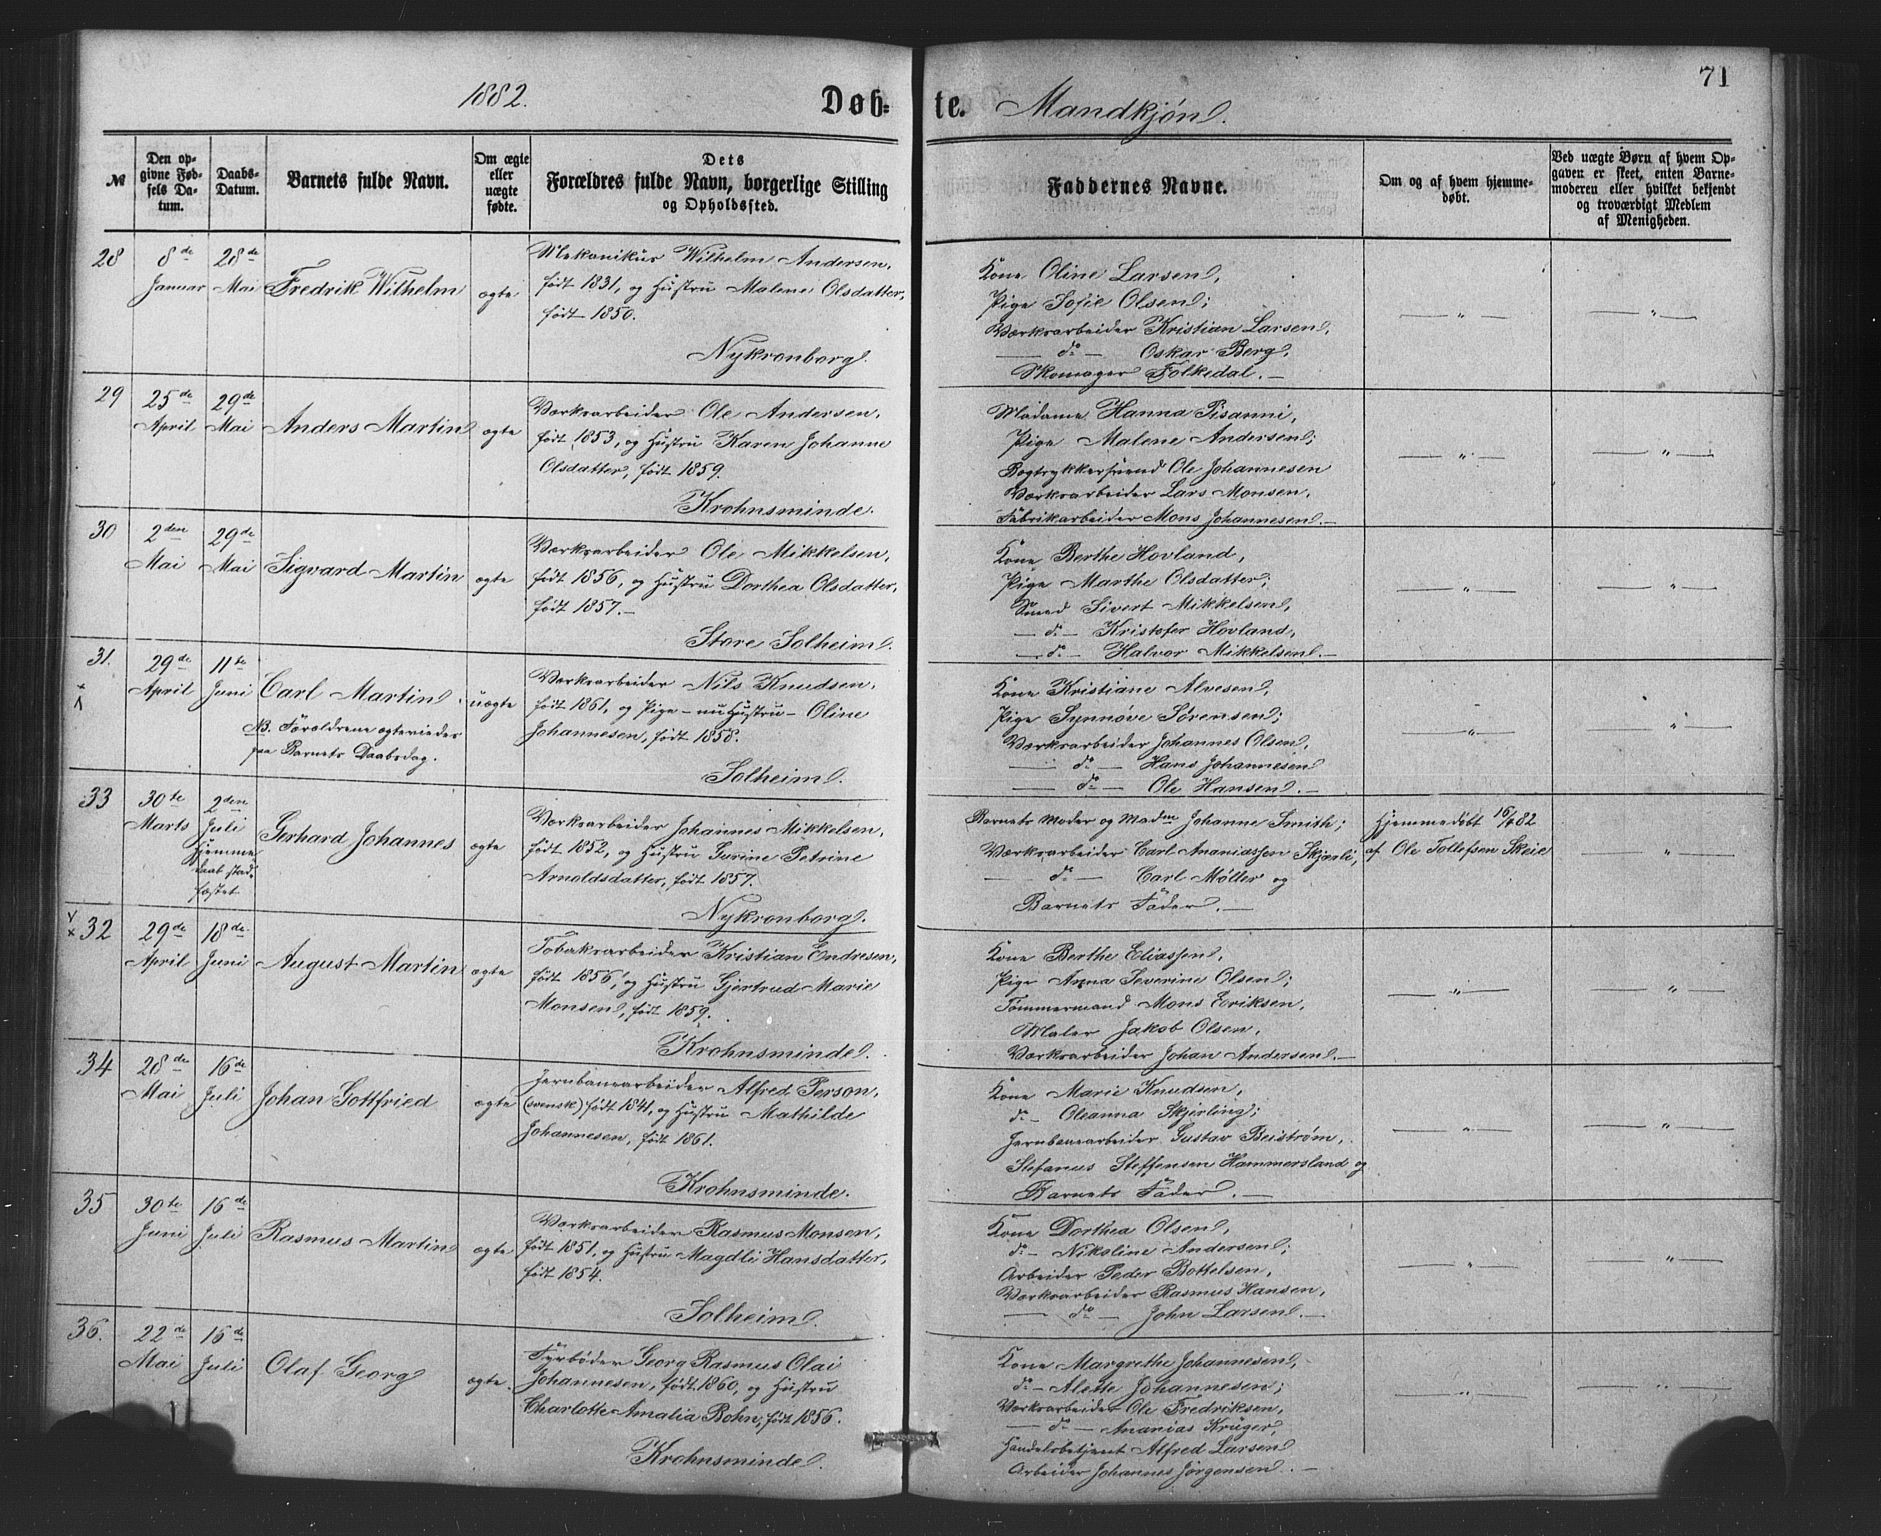 71
1882.
Døb-
te.
Mandkjøn.
№
Den op-
givne Fød-
sels Da-
tum.
Daabs-
Datum.
Barnets fulde Navn.
Om ægte
eller
uægte
fødte.
Dets
Forældres fulde Navn, borgerlige Stilling
og Opholdssted.
Faddernes Navne.
Om og af hvem hjemme-
døbt.
Ved uægte Børn af hvem Op-
gaven er skeet, enten Barne-
moderen eller hvilket bekjendt
og troværdigt Medlem
af Menigheden.
28
8de
Januar
28de
Mai
Fredrik Wilhelm
ægte
Mekanikus Wilhelm Andersen,
født 1831, og Hustru Malene Olsdatter,
født 1850.
Nykronborg.
Kone Oline Larsen,
Pige Sofie Olsen;
Værksarbeider Kristian Larsen,
— do — Oskar Berg,
Skomager Folkedal. —
— " —
— " —
29
25de
April
29de
Mai
Anders Martin
ægte
Værksarbeider Ole Andersen,
født 1853, og Hustru Karen Johanne
Olsdatter, født 1859.
Krohnsminde.
Madame Hanna Pisanni,
Pige Malene Andersen;
Bogtrykkersvend Ole Johannesen
Værksarbeider Lars Monsen,
Fabrikarbeider Mons Johannesen. —
— " —
— " —
30
2den
Mai
29de
Mai
Sigvard Martin
ægte
Værksarbeider Ole Mikkelsen,
født 1856, og Hustru Dorthea Olsdatter,
født 1857. —
Store Solheim.
Kone Berthe Hovland,
Pige Marthe Olsdatter;
Smed Sivert Mikkelsen,
— do — Kristofer Hovland,
— do — Halvor Mikkelsen. —
— " —
— " —
31.
29de
April
11te
Juni
Carl Martin.
NB. Forældrene ægteviedes
paa Barnets Daabsdag.
uægte
Værksarbeider Nils Knudsen,
født 1861, og Pige — nu Hustru — Oline
Johannesen, født 1858.
Solheim.
Kone Kristiane Alvesen,
Pige Synnøve Sørensen;
Værksarbeider Johannes Olsen,
— do — Hans Johannesen
— do — Ole Hansen. —
— " —
— " —
33
30te
Marts
2den
Juli
Hjemme-
daab stad-
fæstet
Gerhard Johannes
ægte
Værksarbeider Johannes Mikkelsen,
født 1852, og Hustru Gurine Petrine
Arnoldsdatter, født 1857.
Nykronborg.
Barnets Moder og Madme Johanne Smith;
Værksarbeider Carl Ananiassen Skjærli,
— do — Carl Møller og
Barnets Fader. —
Hjemmedøbt 16/4 82
af Ole Tollefsen Skeie
— " —
32
29de
April
18de
Juni
August Martin
ægte
Tobaksarbeider Kristian Endresen,
født 1856, og Hustru Gjertrud Marie
Monsen, født 1859.
Krohnsminde.
Kone Berthe Eliassen,
Pige Anna Severine Olsen;
Tømmermand Mons Eriksen,
Maler Jakob Olsen,
Værksarbeider Johan Andersen. —
— " —
— " —
34
28de
Mai
16de
Juli
Johan Gottfried
ægte
Jernbanearbeider Alfred Person,
(svensk) født 1841, og Hustru Mathilde
Johannesen, født 1861.
Krohnsminde.
Kone Marie Knudsen,
do — Oleanna Skjerling;
Jernbanearbeider Gustav Beiström,
Stefanus Steffensen Hammersland og
Barnets Fader. —
— " —
— " —
35
30te
Juni
16de
Juli
Rasmus Martin
ægte
Værksarbeider Rasmus Monsen,
født 1851, og Hustru Magdli Hansdatter,
født 1854.
Solheim.
Kone Dorthea Olsen,
do — Nikoline Andersen;
Arbeider Peder Bottelsen,
Værksarbeider Rasmus Hansen,
— do — John Larsen. —
— " —
— " —
36.
22de
Mai
16de
Juli
Olaf Georg
ægte.
Fyrbøder Georg Rasmus Olai
Johannesen, født 1860, og Hustru
Charlotte Amalia Bohn, født 1856.
Krohnsminde.
Kone Margrethe Johannesen,
do — Alette Johannesen;
Værksarbeider Ole Fredriksen,
— do — Ananias Krüger,
Handelsbetjent Alfred Larsen
Arbeider Johannes Jørgensen. —
— " —
— " —